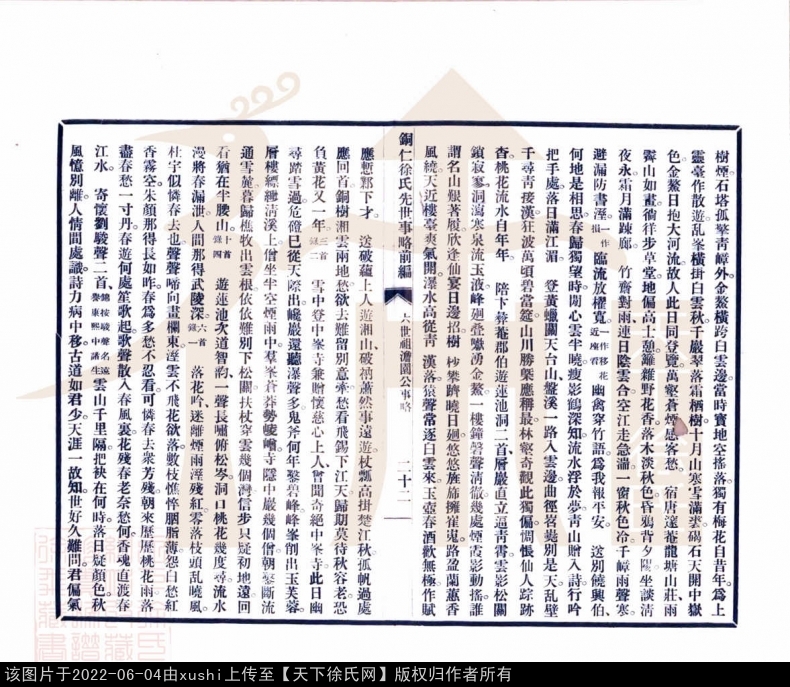 樹煙石塔孤擎青嶂外金鰲橫跨白雲邊當時寶地空搖落獨有梅花自昔年爲上
靈臺作散遊亂峯橫掛白雲秋千嚴翠落霜棲樹十月山寒雪滿裘碣石天開中嶽
色金鰲日抱大河流故人此日同登覽萬壑蒼煙感客愁 宿唐遠菴龍塘山莊雨
霽山如畫徜徉步草堂地偏高士憩籬雜野花香落木淡秋色昏鴉背夕陽坐談淸
夜永霜月滿疎廊 竹齋對雨連日陰雲合空江走急湍一窗秋色冷千嶂雨聲寒
避漏防書溼一作損臨流放櫂寬一作移花近座看幽禽穿竹語爲我報平安 送別饒興伯
何地是相思春歸獨望時閒心雲半曉瘦影鶴深知流水浮於夢靑山贈入詩行吟
把手處落日滿江湄 登黃蠟關天台山盤溪一路入雲邊曲徑岧嶤別是天乱壁
千尋靑接漢狂波萬頃碧當筵山川勝槩應稱最林壑奇觀此獨偏惆悵仙人踪跡
杳桃花流水自年年 陪卞蕁菴郡伯遊蓮池洞二首層巖直立逼靑霄雲影松關
鎖寂寥洞瀉寒泉流玉液峰廻疊嶂湧金鰲一樓鐘磬聲淸徹幾處煙霞影動搖誰
謂名山艱著屐欣逢仙宴日邊招樹杪攀躋曉日廻悠悠旌旆擁崔嵬路盆蘭蕙香
風繞天近樓臺爽氣開瀑水高從靑漢落猿聲常逐白雲來玉壺春酒歡無極作賦
銅仁徐氏先世事略前編 六世祖澹園公事略 二十二
應慙鄴下才 送破蘊上人遊湘山破衲蕭然事遠遊杖瓢高掛楚江秋孤帆過處
應回首銅樹湘雲兩地愁欲去難留別意牽愁看飛錫下江天歸期莫待秋容老恐
負黃花又一年三首錄二 雪中登中峯寺兼贈懷慈心上人曾聞奇絕中峯寺此日幽
尋踏雪過危磴已從天際出巉巖還聽澤聲多鬼斧何年鑿碧峰峰峯削出玉芙蓉
層樓縹緲淸溪上僧坐半空煙雨中羣峯蒼莽勢崚嶒寺隱中巖幾個僧朝磬斷流
通雪麓暮歸樵牧出雲根依依難別下松關扶杖穿雲幾個灣信步只疑初地遠回
看猶在半腰山十首錄四 遊蓮池次道智韵一聲長嘯俯松岑洞口桃花幾度尋流水
漫將春漏泄人間那得武陵深六首錄一 落花吟迷離煙雨溼殘紅零落枝頭乱曉風
杜宇似憐春去也聲聲啼向畫欄東溼雲不飛花欲落數枝憔悴胭脂薄怨白愁紅
香霧空朱顏那得長如昨春爲多愁不忍看可憐春去衆芳殘朝來歷歷桃花雨落
盡春愁一寸丹春遊何處笙歌起歌聲散入春風裏花殘春老奈愁何香魂直渡春
江水 寄懷劉駿聲二首錦按駿聲名遠譽康熙中諸生雲山千里隔把袂在何時落日疑顏色秋
風憶別離人情閒處識詩力病中移古道如君少天涯一故知世好久難問君偏氣
该图片于2022-06-04由xushi上传至【天下徐氏网】版权归作者所有